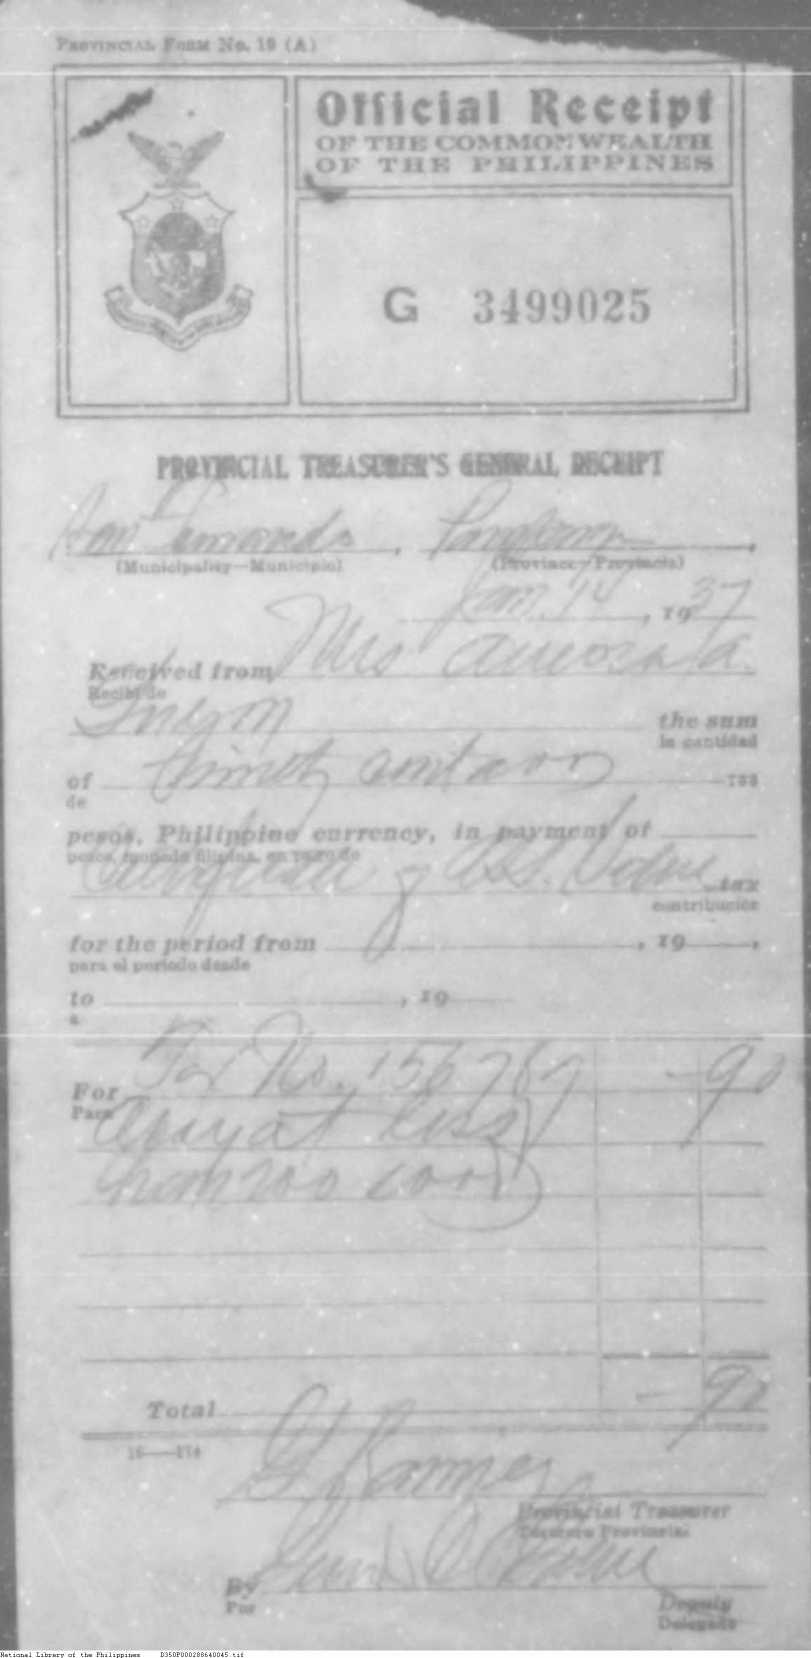 PROVINCIAL FORM No. 19 (A)
Official Receipt
OF THE COMMONWEALTH
OF THE PHILIPPINES
G 3499025
PROVINCIAL TREASURER'S GENERAL RECEIPT
San Fernando, Pampanga,
(Municipality—Municipio) (Province—Provincia)
Jan. 14, 1937
Received from Mrs Aurora A.
Recibí de
Quezon the sum
la cantidad
of ninety centavos
de
pesos, Philippine currency, in payment of
pesos, moneda filipina, en pago de
tax
contribución
for the period from , 19 ,
para el período desde
to , 19
a
For Tax No. 156787 -90
Para
Arayat
Total -90
Provincial Treasurer
Tesorero Provincial
By
Por
Deputy
Delegado
National Library of the Philippines D350P000288640045.tif